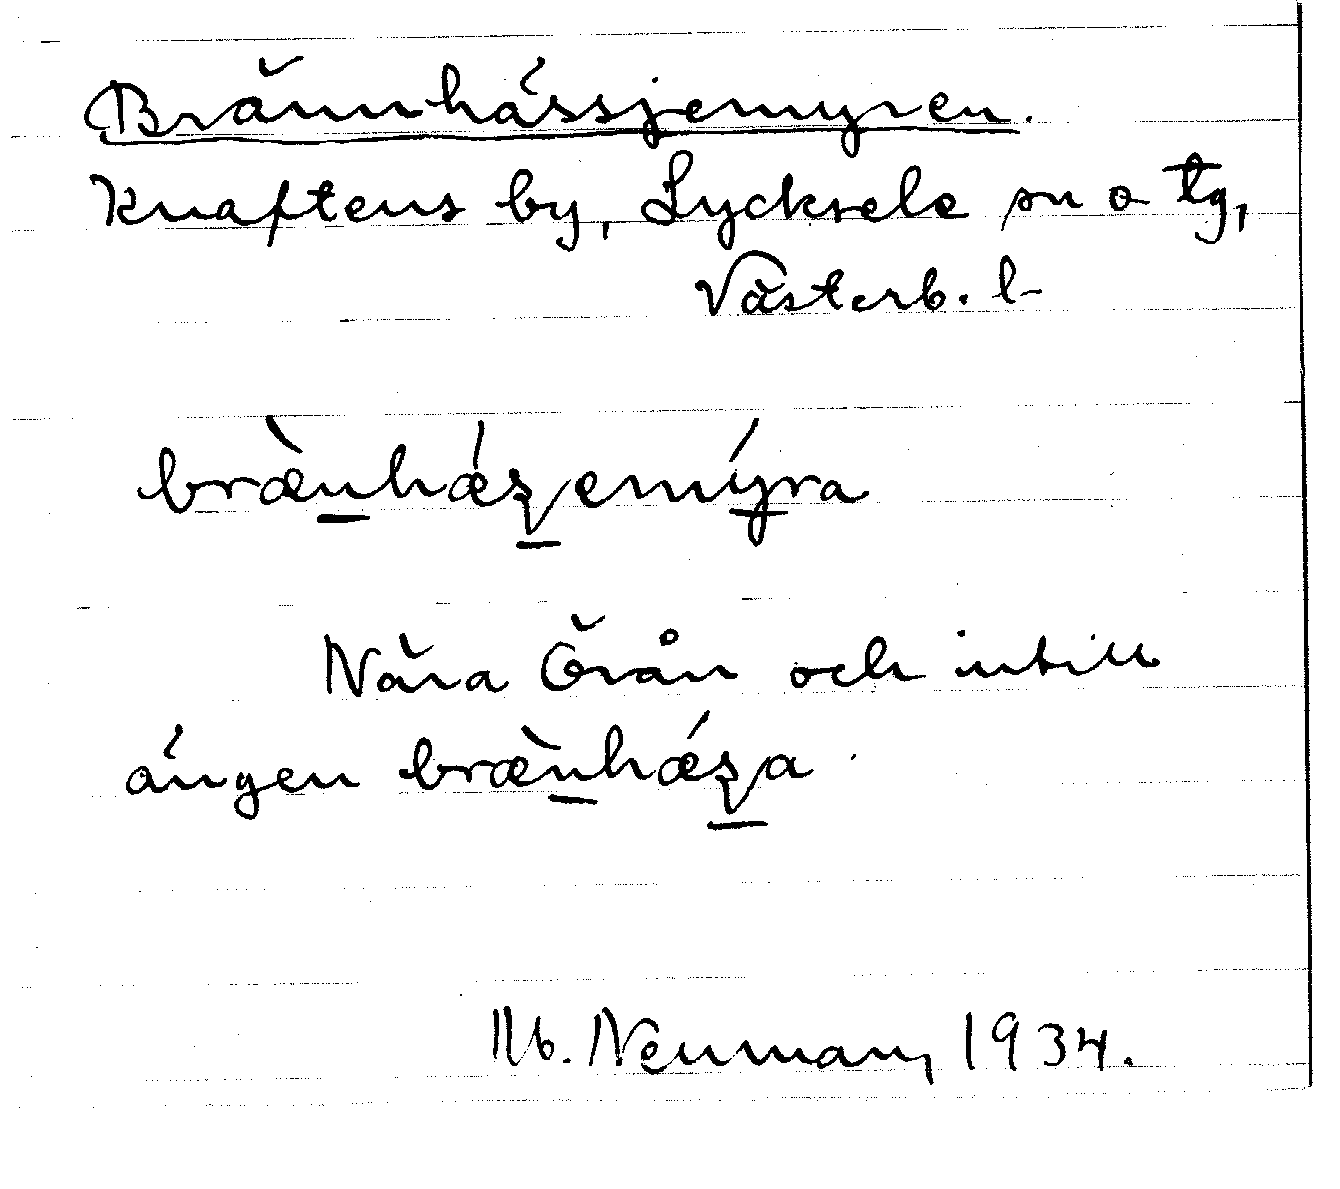 Brännhässjemyren.
Knaftens by, Lycksele sn o tg,
Västerb. l.
bræ̀nhǽʂemýra
Nära Örån och intill
ängen bræ̀nhǽʂa
Mb. Neuman, 1934.